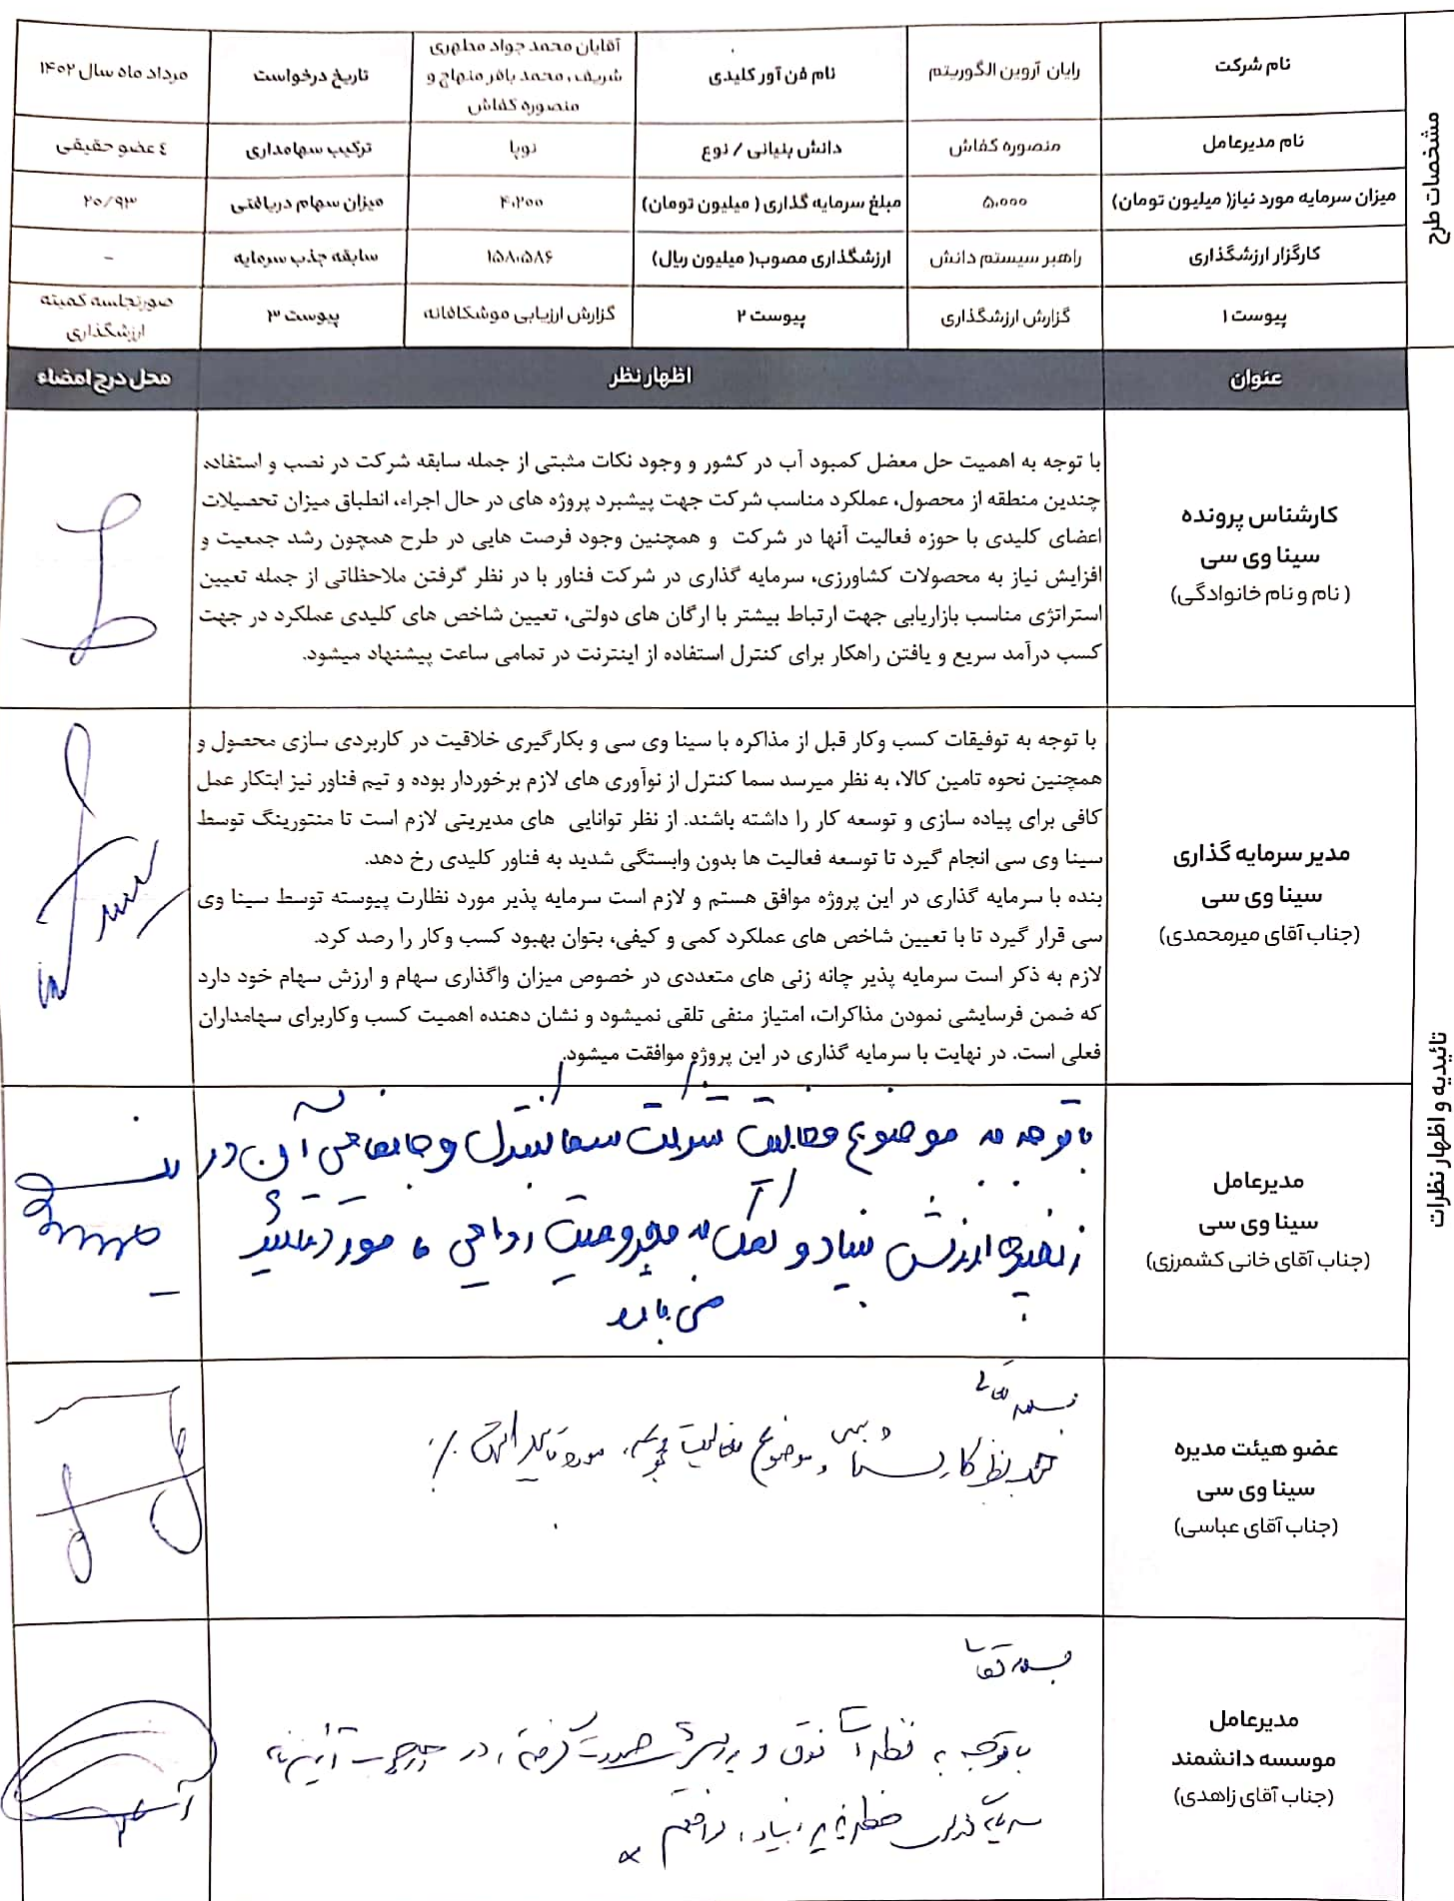 مشخصات طرح
نام شرکت
رایان آروین الگوریتم
نام فن آور کلیدی
آقایان محمد جواد مطهری
شریف، محمد باقر منهاج و
منصوره کفاش
تاریخ درخواست
مرداد ماه سال ۱۴۰۲
نام مدیرعامل
منصوره کفاش
دانش بنیانی / نوع
نوپا
ترکیب سهامداری
٤ عضو حقیقی
میزان سرمایه مورد نیاز( میلیون تومان)
۵،۰۰۰
مبلغ سرمایه گذاری ( میلیون تومان)
۴،۲۰۰
میزان سهام دریافتی
۲۰/۹۳
کارگزار ارزشگذاری
راهبر سیستم دانش
ارزشگذاری مصوب( میلیون ریال)
۱۵۸،۵۸۶
سابقه جذب سرمایه
-
پیوست ۱
گزارش ارزشگذاری
پیوست ۲
گزارش ارزیابی موشکافانه
پیوست ۳
صورتجلسه کمیته
ارزشگذاری
عنوان
اظهار نظر
محل درج امضاء
تائیدیه و اظهار نظرات
کارشناس پرونده
سینا وی سی
( نام و نام خانوادگی)
با توجه به اهمیت حل معضل کمبود آب در کشور و وجود نکات مثبتی از جمله سابقه شرکت در نصب و استفاده
چندین منطقه از محصول، عملکرد مناسب شرکت جهت پیشبرد پروژه های در حال اجراء، انطباق میزان تحصیلات
اعضای کلیدی با حوزه فعالیت آنها در شرکت و همچنین وجود فرصت هایی در طرح همچون رشد جمعیت و
افزایش نیاز به محصولات کشاورزی، سرمایه گذاری در شرکت فناور با در نظر گرفتن ملاحظاتی از جمله تعیین
استراتژی مناسب بازاریابی جهت ارتباط بیشتر با ارگان های دولتی، تعیین شاخص های کلیدی عملکرد در جهت
کسب درآمد سریع و یافتن راهکار برای کنترل استفاده از اینترنت در تمامی ساعت پیشنهاد میشود.
مدیر سرمایه گذاری
سینا وی سی
(جناب آقای میرمحمدی)
با توجه به توفیقات کسب وکار قبل از مذاکره با سینا وی سی و بکارگیری خلاقیت در کاربردی سازی محصول و
همچنین نحوه تامین کالا، به نظر میرسد سما کنترل از نوآوری های لازم برخوردار بوده و تیم فناور نیز ابتکار عمل
کافی برای پیاده سازی و توسعه کار را داشته باشند. از نظر توانایی های مدیریتی لازم است تا منتورینگ توسط
سینا وی سی انجام گیرد تا توسعه فعالیت ها بدون وابستگی شدید به فناور کلیدی رخ دهد.
بنده با سرمایه گذاری در این پروژه موافق هستم و لازم است سرمایه پذیر مورد نظارت پیوسته توسط سینا وی
سی قرار گیرد تا با تعیین شاخص های عملکرد کمی و کیفی، بتوان بهبود کسب وکار را رصد کرد.
لازم به ذکر است سرمایه پذیر چانه زنی های متعددی در خصوص میزان واگذاری سهام و ارزش سهام خود دارد
که ضمن فرسایشی نمودن مذاکرات، امتیاز منفی تلقی نمیشود و نشان دهنده اهمیت کسب وکاربرای سهامداران
فعلی است. در نهایت با سرمایه گذاری در این پروژه موافقت میشود.
مدیرعامل
سینا وی سی
(جناب آقای خانی کشمرزی)
با توجه به موضوع فعالیت شرکت سما کنترل و جانمایی آن در
زنجیره ارزش بنیاد و کمک به محرومیت زدایی مورد تائید
می باشد
عضو هیئت مدیره
سینا وی سی
(جناب آقای عباسی)
بسمه تعالی
نظر کارشناسی و موضوع فعالیت مورد تایید است
مدیرعامل
موسسه دانشمند
(جناب آقای زاهدی)
بسمه تعالی
با توجه به نظرات فوق و بررسی صورت گرفته، در چارچوب آئین نامه
سرمایه گذاری خطرپذیر بنیاد، موافقم